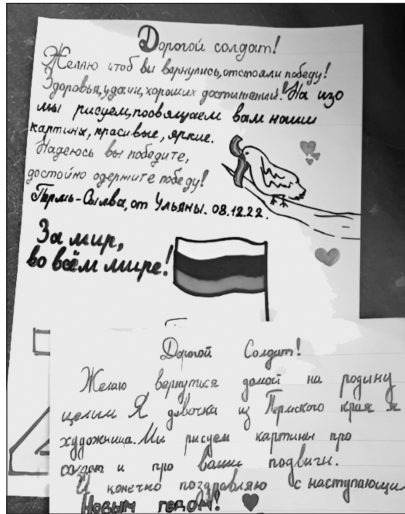 Дорогой солдат!
Желаю чтоб вы вернулись, отстояли победу!
Здоровья, удачи, хороших достижений! На изо
мы рисуем, посвящаем вам наши
картины, красивые, яркие.
Надеюсь вы победите,
достойно одержите победу!
Пермь-Сылва, от Ульяны. 08.12.22.
За мир,
во всём мире!
Дорогой Солдат!
Желаю вернутися домой на родину
целим Я девочка из Пермского края я
художница. Мы рисуем картины про
солдат и про ваши подвиги.
И конечно поздравляю с наступающим
Новым годом!